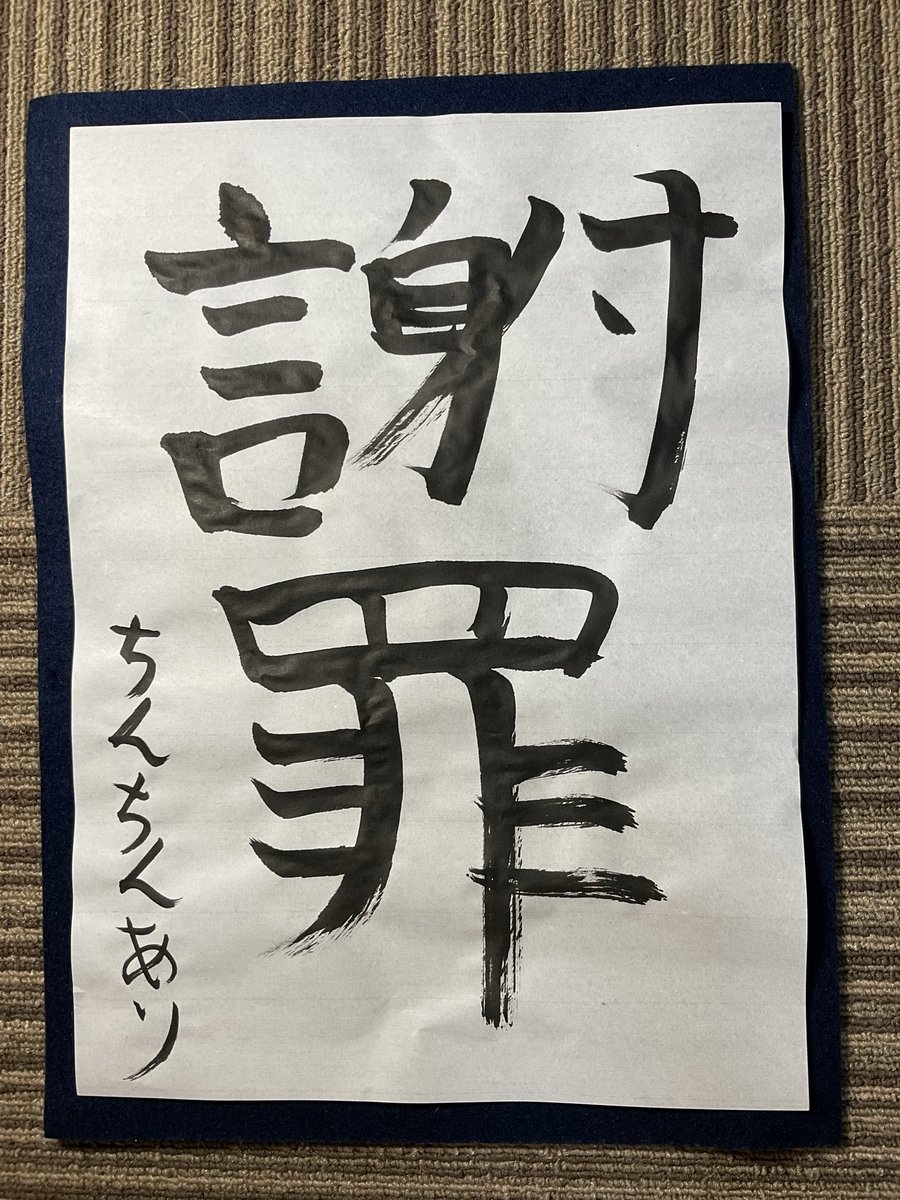 謝罪
ちんちんあり